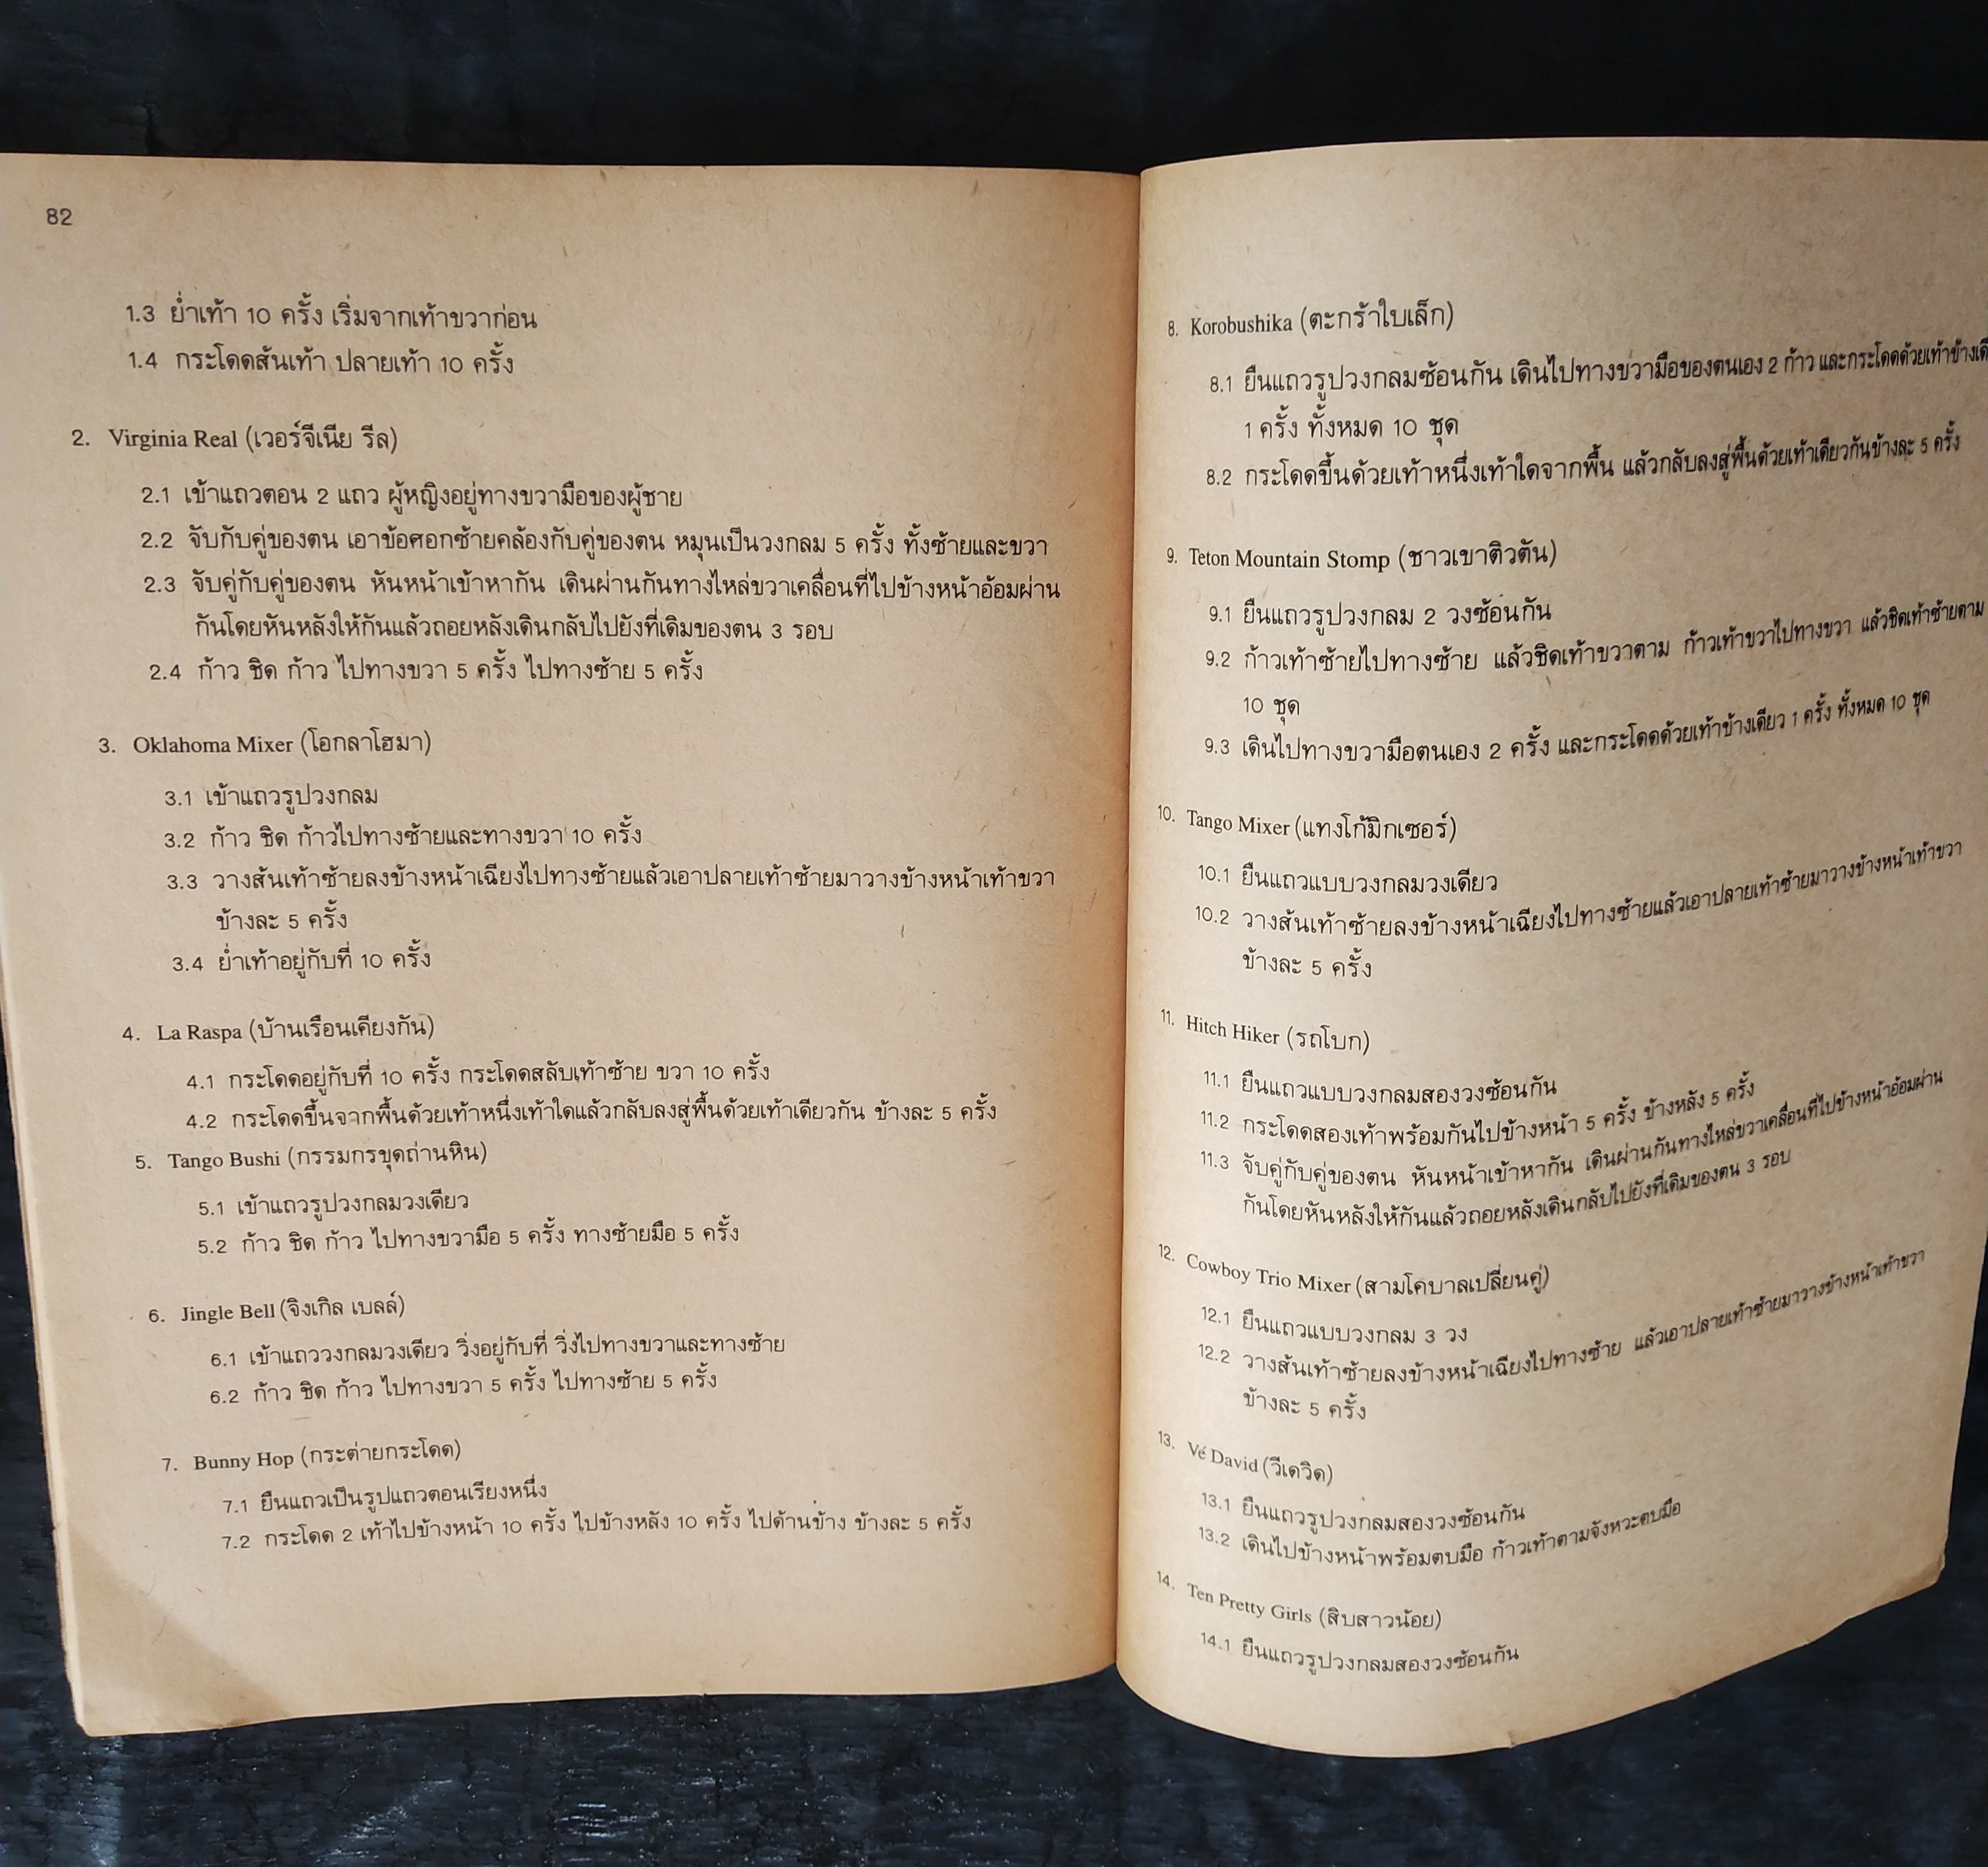 82
1.3 ย่ำเท้า 10 ครั้ง เริ่มจากเท้าขวาก่อน
1.4 กระโดดส้นเท้า ปลายเท้า 10 ครั้ง
2. Virginia Real (เวอร์จีเนีย รีล)
2.1 เข้าแถวตอน 2 แถว ผู้หญิงอยู่ทางขวามือของผู้ชาย
2.2 จับกับคู่ของตน เอาข้อศอกซ้ายคล้องกับคู่ของตน หมุนเป็นวงกลม 5 ครั้ง ทั้งซ้ายและขวา
2.3 จับคู่กับคู่ของตน หันหน้าเข้าหากัน เดินผ่านกันทางไหล่ขวาเคลื่อนที่ไปข้างหน้าอ้อมผ่าน
กันโดยหันหลังให้กันแล้วถอยหลังเดินกลับไปยังที่เดิมของตน 3 รอบ
2.4 ก้าว ชิด ก้าว ไปทางขวา 5 ครั้ง ไปทางซ้าย 5 ครั้ง
3. Oklahoma Mixer (โอกลาโฮมา)
3.1 เข้าแถวรูปวงกลม
3.2 ก้าว ชิด ก้าวไปทางซ้ายและทางขวา 10 ครั้ง
3.3 วางส้นเท้าซ้ายลงข้างหน้าเฉียงไปทางซ้ายแล้วเอาปลายเท้าซ้ายมาวางข้างหน้าเท้าขวา
ข้างละ 5 ครั้ง
3.4 ย่ำเท้าอยู่กับที่ 10 ครั้ง
4. La Raspa (บ้านเรือนเคียงกัน)
4.1 กระโดดอยู่กับที่ 10 ครั้ง กระโดดสลับเท้าซ้าย ขวา 10 ครั้ง
4.2 กระโดดขึ้นจากพื้นด้วยเท้าหนึ่งเท้าใดแล้วกลับลงสู่พื้นด้วยเท้าเดียวกัน ข้างละ 5 ครั้ง
5. Tango Bushi (กรรมกรขุดถ่านหิน)
5.1 เข้าแถวรูปวงกลมวงเดียว
5.2 ก้าว ชิด ก้าว ไปทางขวามือ 5 ครั้ง ทางซ้ายมือ 5 ครั้ง
6. Jingle Bell (จิงเกิล เบลล์)
6.1 เข้าแถววงกลมวงเดียว วิ่งอยู่กับที่ วิ่งไปทางขวาและทางซ้าย
6.2 ก้าว ชิด ก้าว ไปทางขวา 5 ครั้ง ไปทางซ้าย 5 ครั้ง
7. Bunny Hop (กระต่ายกระโดด)
7.1 ยืนแถวเป็นรูปแถวตอนเรียงหนึ่ง
7.2 กระโดด 2 เท้าไปข้างหน้า 10 ครั้ง ไปข้างหลัง 10 ครั้ง ไปด้านข้าง ข้างละ 5 ครั้ง
8. Korobushika (ตะกร้าใบเล็ก)
8.1 ยืนแถวรูปวงกลมซ้อนกัน เดินไปทางขวามือของตนเอง 2 ก้าว และกระโดดด้วยเท้าข้าง
1 ครั้ง ทั้งหมด 10 ชุด
8.2 กระโดดขึ้นด้วยเท้าหนึ่งเท้าใดจากพื้น แล้วกลับลงสู่พื้นด้วยเท้าเดียวกันข้างละ 5 ครั้ง
9. Teton Mountain Stomp (ชาวเขาติวตัน)
9.1 ยืนแถวรูปวงกลม 2 วงซ้อนกัน
9.2 ก้าวเท้าซ้ายไปทางซ้าย แล้วชิดเท้าขวาตาม ก้าวเท้าขวาไปทางขวา แล้วชิดเท้าซ้ายตาม
10 ชุด
9.3 เดินไปทางขวามือตนเอง 2 ครั้ง และกระโดดด้วยเท้าข้างเดียว 1 ครั้ง ทั้งหมด 10 ชุด
10. Tango Mixer (แทงโก้มิกเซอร์)
10.1 ยืนแถวแบบวงกลมวงเดียว
10.2 วางส้นเท้าซ้ายลงข้างหน้าเฉียงไปทางซ้ายแล้วเอาปลายเท้าซ้ายมาวางข้างหน้าเท้าขวา
ข้างละ 5 ครั้ง
11. Hitch Hiker (รถโบก)
11.1 ยืนแถวแบบวงกลมสองวงซ้อนกัน
11.2 กระโดดสองเท้าพร้อมกันไปข้างหน้า 5 ครั้ง ข้างหลัง 5 ครั้ง
11.3 จับคู่กับคู่ของตน หันหน้าเข้าหากัน เดินผ่านกันทางไหล่ขวาเคลื่อนที่ไปข้างหน้าอ้อมผ่าน
กันโดยหันหลังให้กันแล้วถอยหลังเดินกลับไปยังที่เดิมของตน 3 รอบ
12. Cowboy Trio Mixer (สามโคบาลเปลี่ยนคู่)
12.1 ยืนแถวแบบวงกลม 3 วง
12.2 วางส้นเท้าซ้ายลงข้างหน้าเฉียงไปทางซ้าย แล้วเอาปลายเท้าซ้ายมาวางข้างหน้าเท้าขวา
ข้างละ 5 ครั้ง
13. Vé David (วีเดวิด)
13.1 ยืนแถวรูปวงกลมสองวงซ้อนกัน
13.2 เดินไปข้างหน้าพร้อมตบมือ ก้าวเท้าตามจังหวะตบมือ
14. Ten Pretty Girls (สิบสาวน้อย)
14.1 ยืนแถวรูปวงกลมสองวงซ้อนกัน